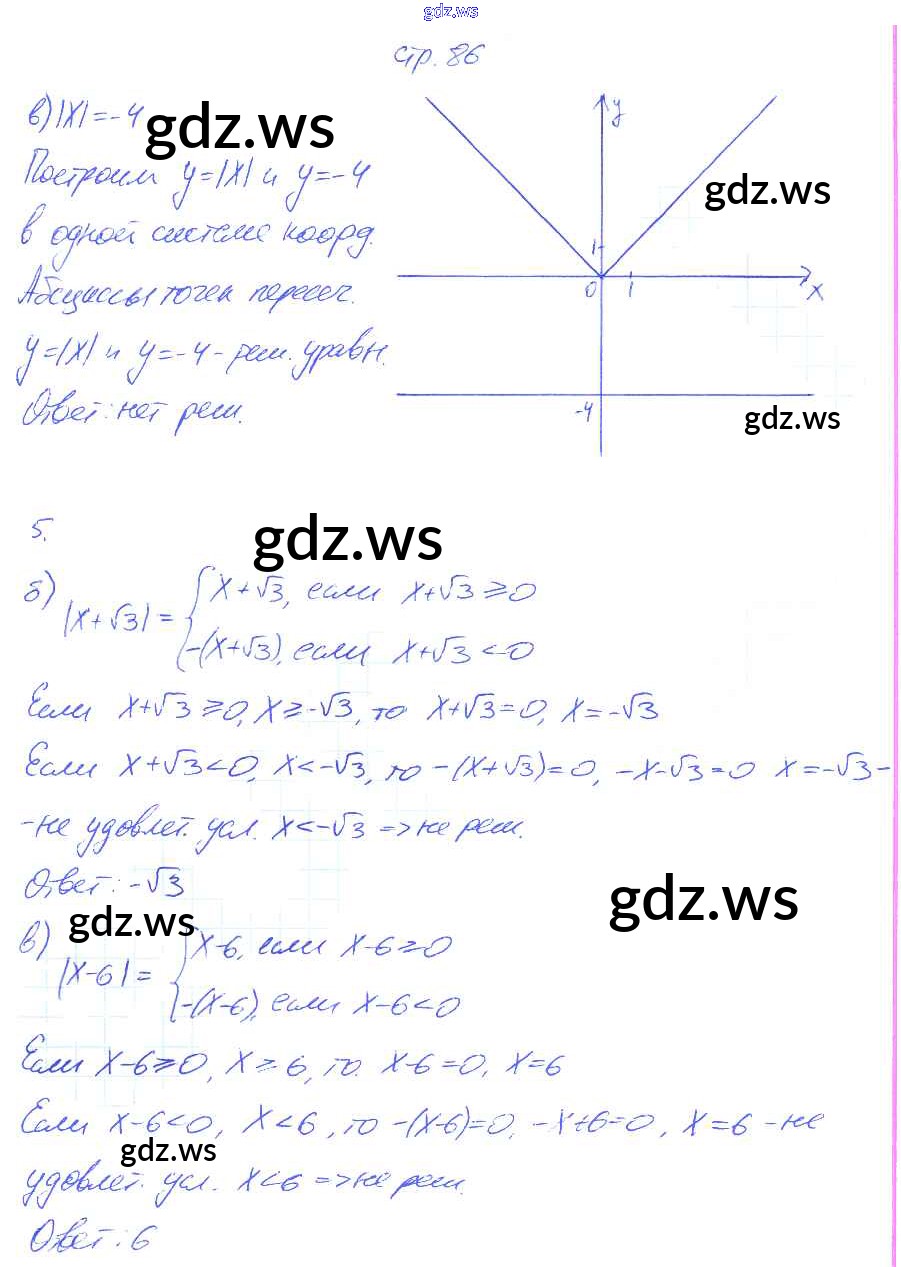 gdz.ws
стр. 86
в) |x| = -4
gdz.ws
Построим y=|x| и y=-4
gdz.ws
в одной системе коорд.
Абсциссы точек пересеч.
y=|x| и y=-4 - реш. уравн.
Ответ: нет реш.
y
1
0 1 x
-4
gdz.ws
5.
gdz.ws
б) |x+√3| = { x+√3, если x+√3 ≥ 0
-(x+√3), если x+√3 < 0
Если x+√3 ≥ 0, x ≥ -√3, то x+√3 = 0, x = -√3
Если x+√3 < 0, x < -√3, то -(x+√3) = 0, -x-√3 = 0 x = -√3 -
- не удовлет. усл. x < -√3 => не реш.
Ответ: -√3
gdz.ws
gdz.ws
в) |x-6| = { x-6, если x-6 ≥ 0
-(x-6), если x-6 < 0
Если x-6 ≥ 0, x ≥ 6, то x-6 = 0, x = 6
Если x-6 < 0, x < 6, то -(x-6) = 0, -x+6 = 0, x = 6 - не
gdz.ws
удовлет. усл. x < 6 => не реш.
Ответ: 6